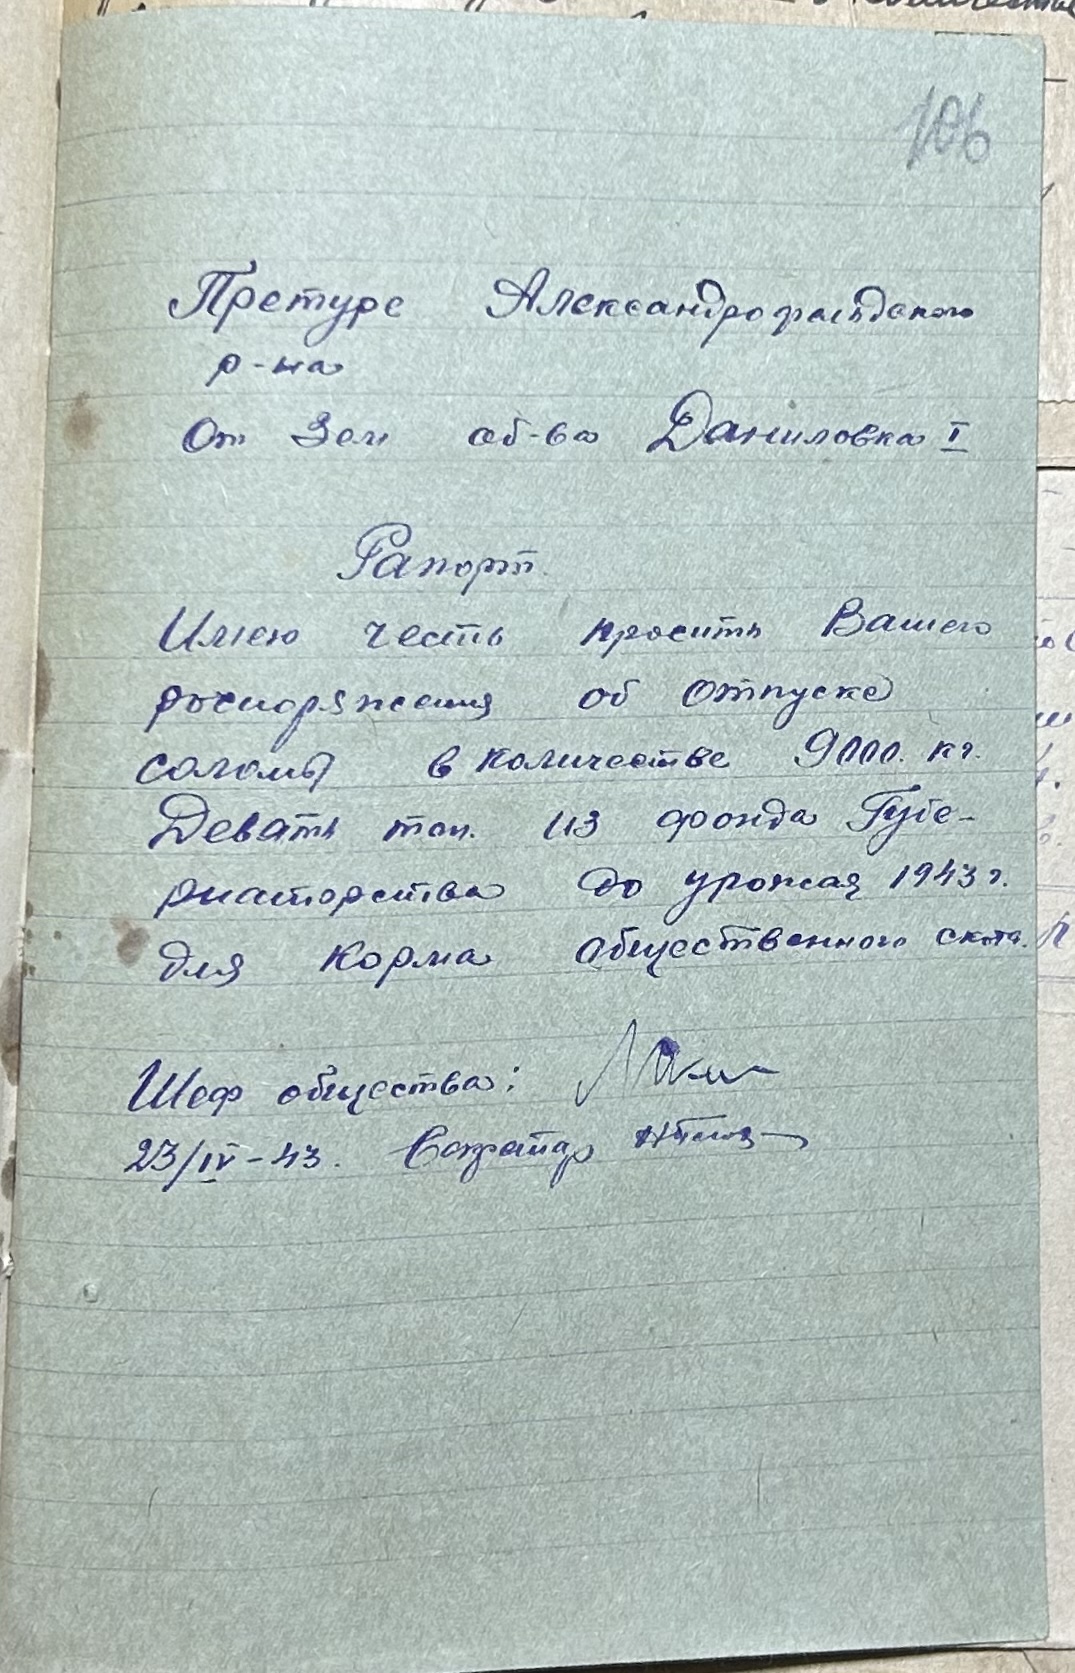 106
Претуре Александрофельдского
р-на
От Зем об-ва Даниловка I
Рапорт.
Имею честь просить Вашего
роспоряжения об отпуске
соломы в количестве 9000. кг.
Девать тон. из фонда Губе-
рнаторства до урожая 1943 г.
для корма общественного скота.
Шеф общества:
23/IV-43. Секретар